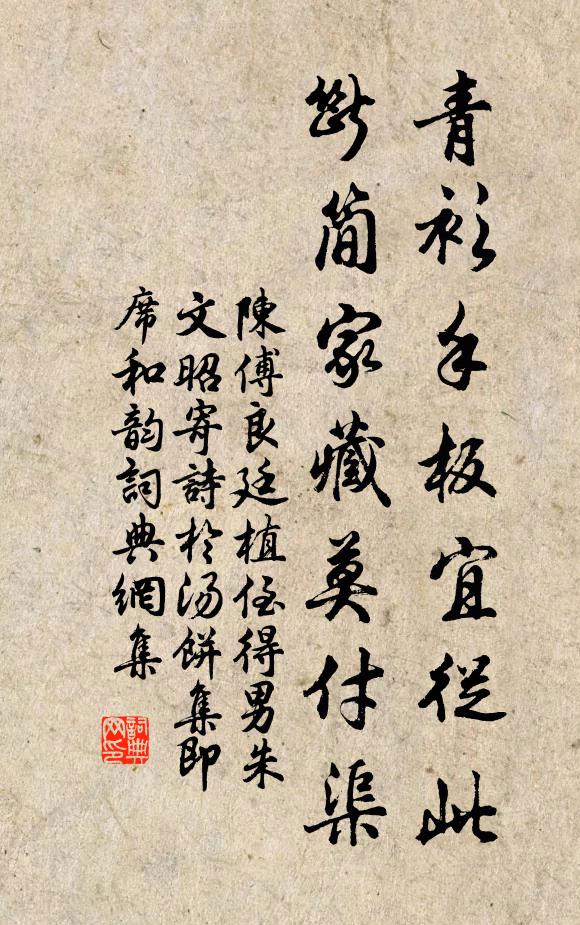 青衫手板宜從此
斷簡家藏莫付渠
陳傅良廷植侄得男朱
文昭寄詩於湯餅集即
席和韵詞典網集
詞典
网印